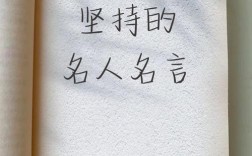 坚持的
名人名言